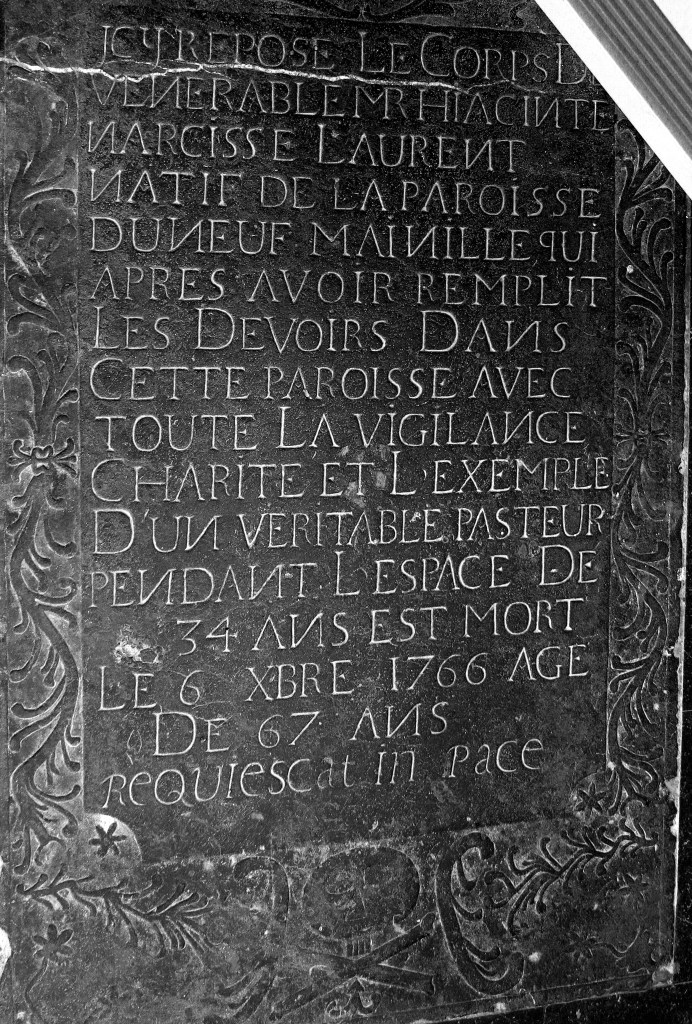 ICY REPOSE LE CORPS DE
VENERABLE MR HIACINTE
NARCISSE LAURENT
NATIF DE LA PAROISSE
DU NEUF MAINILLE QUI
APRES AVOIR REMPLIT
LES DEVOIRS DANS
CETTE PAROISSE AVEC
TOUTE LA VIGILANCE
CHARITE ET L'EXEMPLE
D'UN VERITABLE PASTEUR
PENDANT L'ESPACE DE
34 ANS EST MORT
LE 6 XBRE 1766 AGE
DE 67 ANS
REQUIEScat in PACE